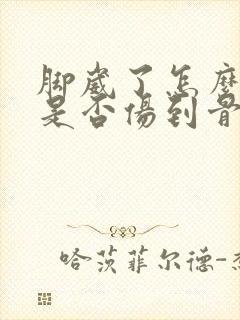 脚崴了怎麽
是否傷到骨
哈茨菲尔德-杰